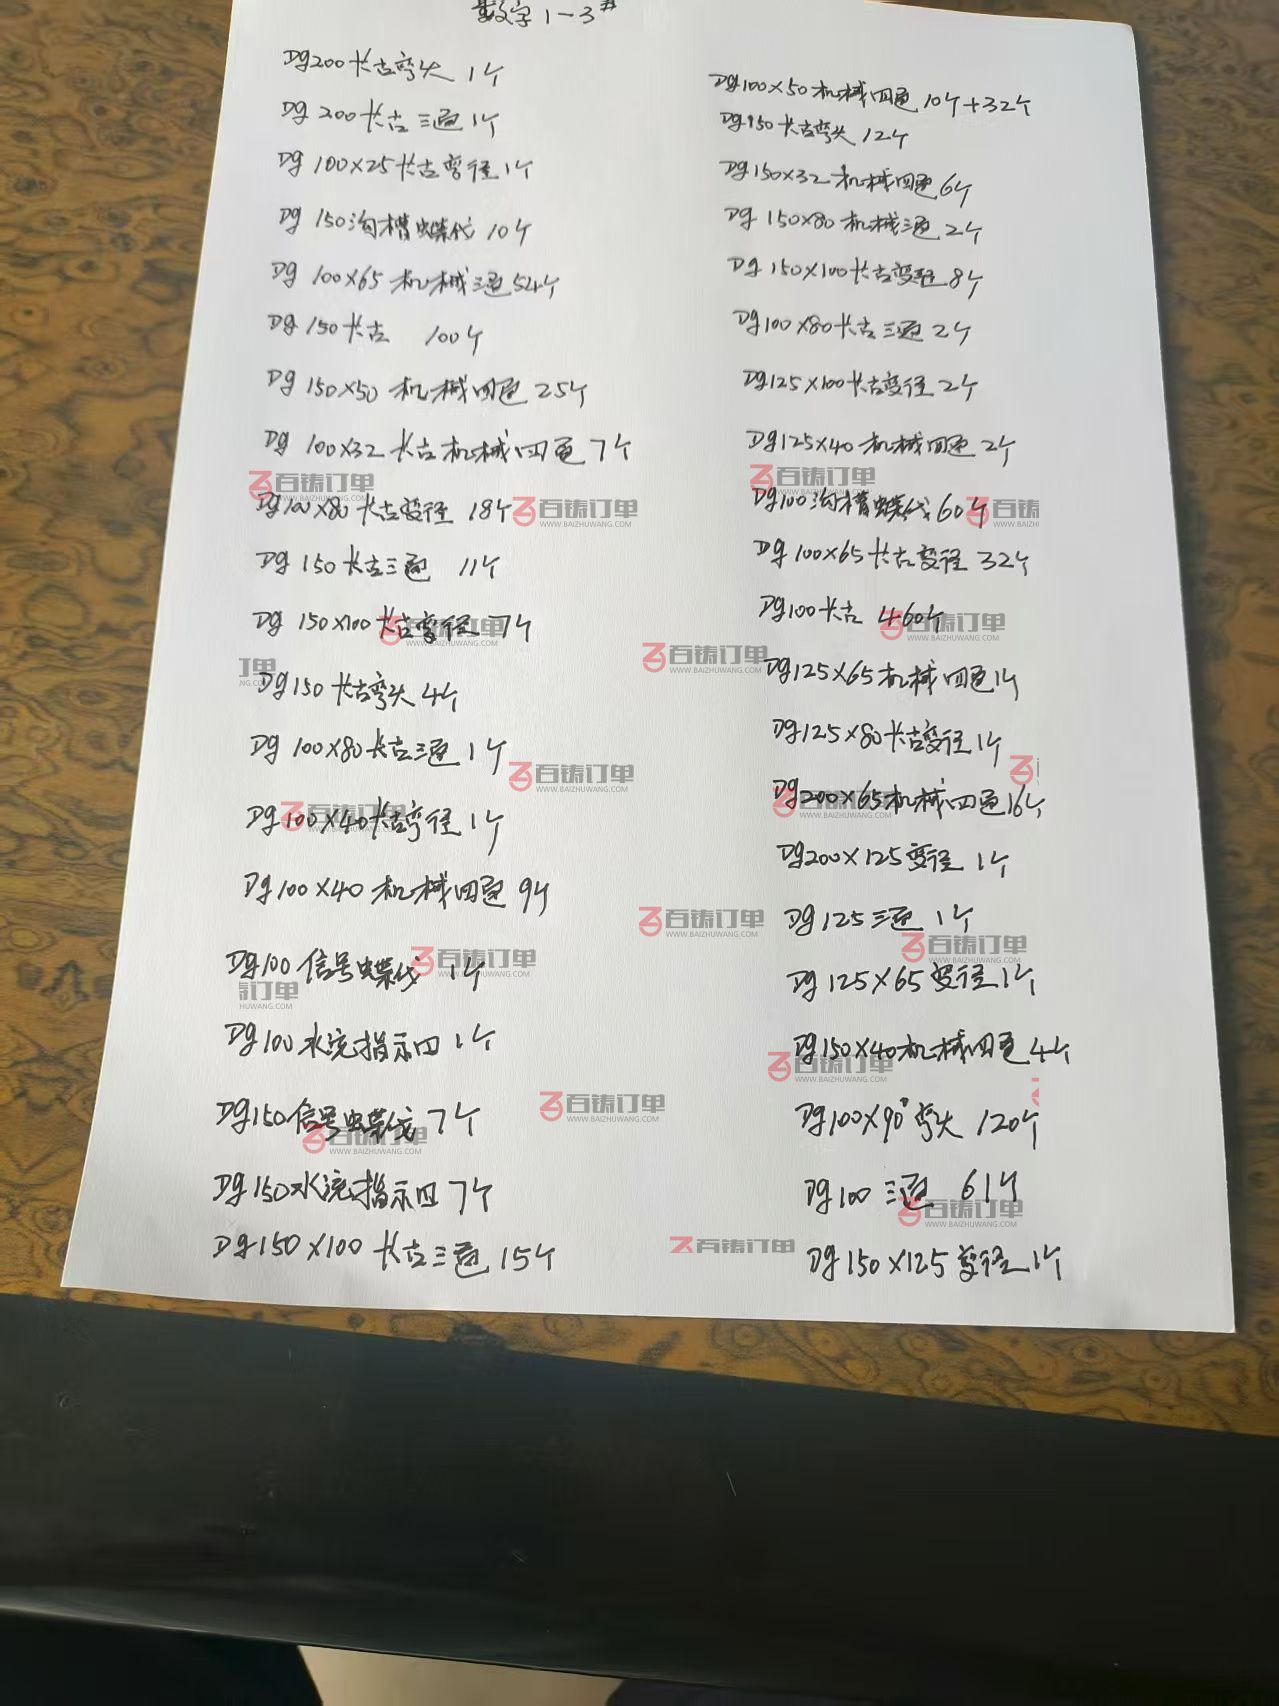 数字1-3#
Dg200卡古弯头 1个
Dg 200卡古三通1个
Dg 100×25卡古变径1个
Dg 150沟槽蝶伐 10个
Dg 100×65机械三通54个
Dg 150卡古 100个
Dg 150×50 机械四通 25个
Dg 100×32 卡古机械四通 7个
Dg100×80卡古变径 18个
Dg 150卡古三通 11个
Dg 150×100卡古变径 7个
Dg150卡古弯头 4个
Dg 100×80卡古三通 1个
Dg100×40卡古变径 1个
Dg100×40 机械四通 9个
Dg100信号蝶伐 1个
Dg100水流指示四 1个
Dg150信号蝶伐 7个
Dg150水流指示四 7个
Dg150×100 卡古三通 15个
Dg100×50机械四通 10个+32个
Dg150卡古弯头 12个
Dg150×32机械四通 6个
Dg 150×80机械三通 2个
Dg 150×100卡古变径 8个
Dg100×80卡古三通 2个
Dg125×100卡古变径 2个
Dg125×40机械四通 2个
Dg100沟槽蝶伐 60个
Dg 100×65卡古变径 32个
Dg100卡古 460个
Dg125×65机械四通1个
Dg125×80卡古变径1个
Dg200×65机械四通16个
Dg200×125变径 1个
Dg 125三通 1个
Dg 125×65变径1个
Dg150×40机械四通4个
Dg100×90°弯头 120个
Dg100 三通 61个
Dg150×125变径1个
百铸订单
WWW.BAIZHUWANG.COM